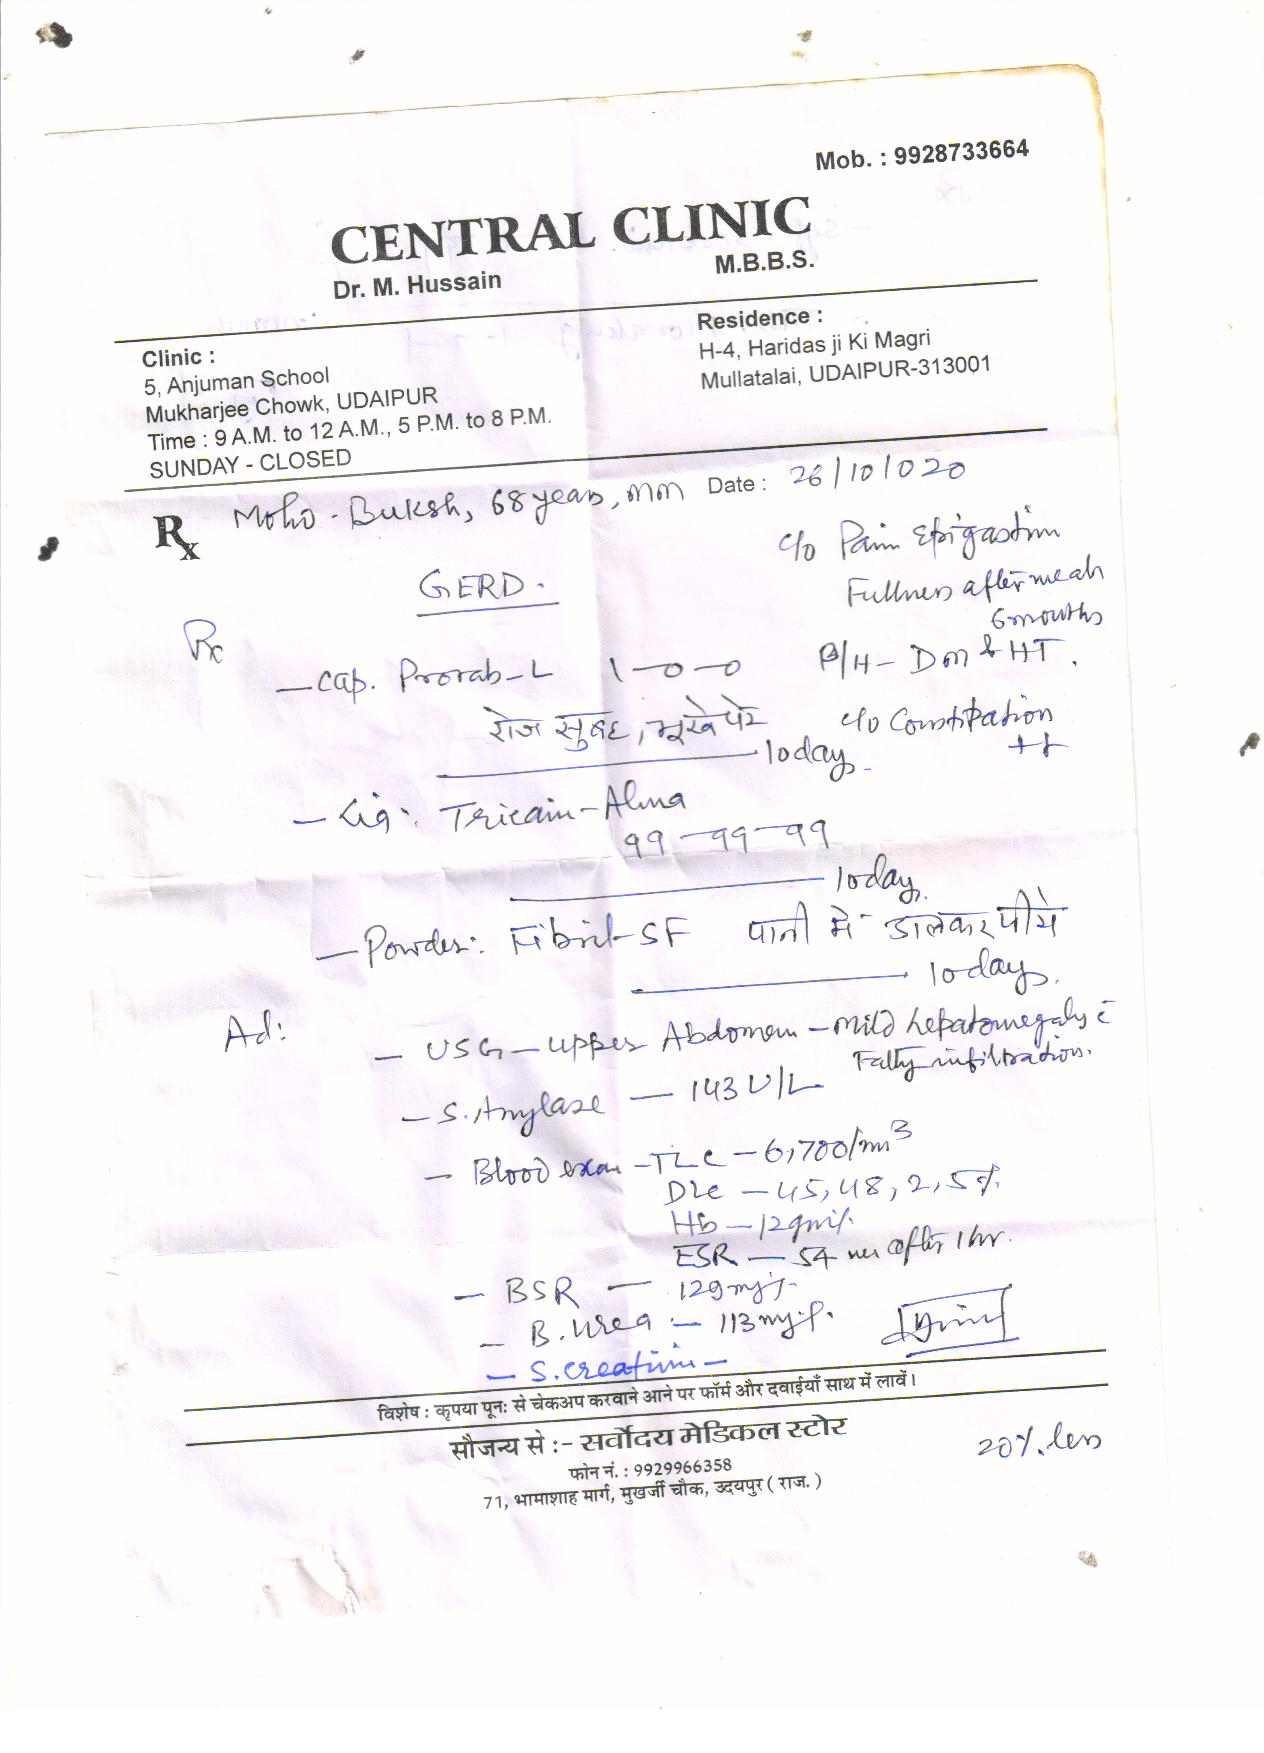 Mob. : 9928733664
CENTRAL CLINIC
Dr. M. Hussain M.B.B.S.
Clinic :
5, Anjuman School
Mukharjee Chowk, UDAIPUR
Time : 9 A.M. to 12 A.M., 5 P.M. to 8 P.M.
SUNDAY - CLOSED
Residence :
H-4, Haridas ji Ki Magri
Mullatalai, UDAIPUR-313001
Date : 26/10/020
Rx Moho - Buksh, 68 years, mm
c/o Pain Epigastim
Fullness after meals
6 months
P/H - DM & HT.
c/o Constipation
++
GERD.
Rx
- Cap. Prorab-L 1-0-0
रोज सुबह, भूखे पेट
10 days.
- Liq: Tricain-Alma
99-99-99
10 days.
- Powder: Fibril-SF पानी में डालकर पीये
10 days.
Ad:
- USG - upper Abdomen - mild hepatomegaly c̄
Fatty infiltration.
- S. Amylase - 143 U/L
- Blood exam - TLC - 6,700/mm3
Dlc - 45, 48, 2, 5%
Hb - 12 gm%
ESR - 54 after 1 hr.
- BSR - 129 mg%
- B. Urea - 113 mg%.
- S. creatinin -
विशेष : कृपया पूनः से चेकअप करवाने आने पर फॉर्म और दवाईयाँ साथ में लावें।
सौजन्य से :- सर्वोदय मेडिकल स्टोर
फोन नं. : 9929966358
71, भामाशाह मार्ग, मुखर्जी चौक, उदयपुर ( राज. )
20%. less